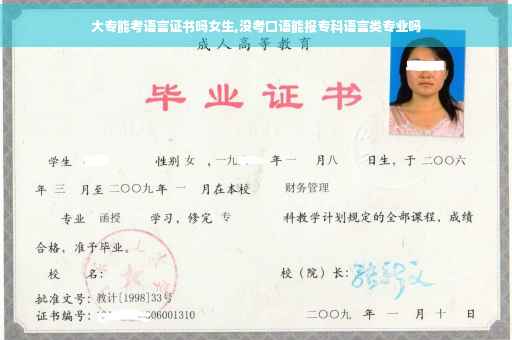 大专能考语言证书吗女生,没考口语能报专科语言类专业吗
成人高等教育
毕业证书
学生 性别 女 ，一九 年 一 月 八 日生，于 二〇〇六
年 三 月至 二〇〇九 年 一 月在本校 财务管理
专业 函授 学习，修完 专 科教学计划规定的全部课程，成绩
合格，准予毕业。
校 名： 校（院）长：
批准文号：教计[1998]33号
证书编号： 006001310 二〇〇九 年 一 月 十 日